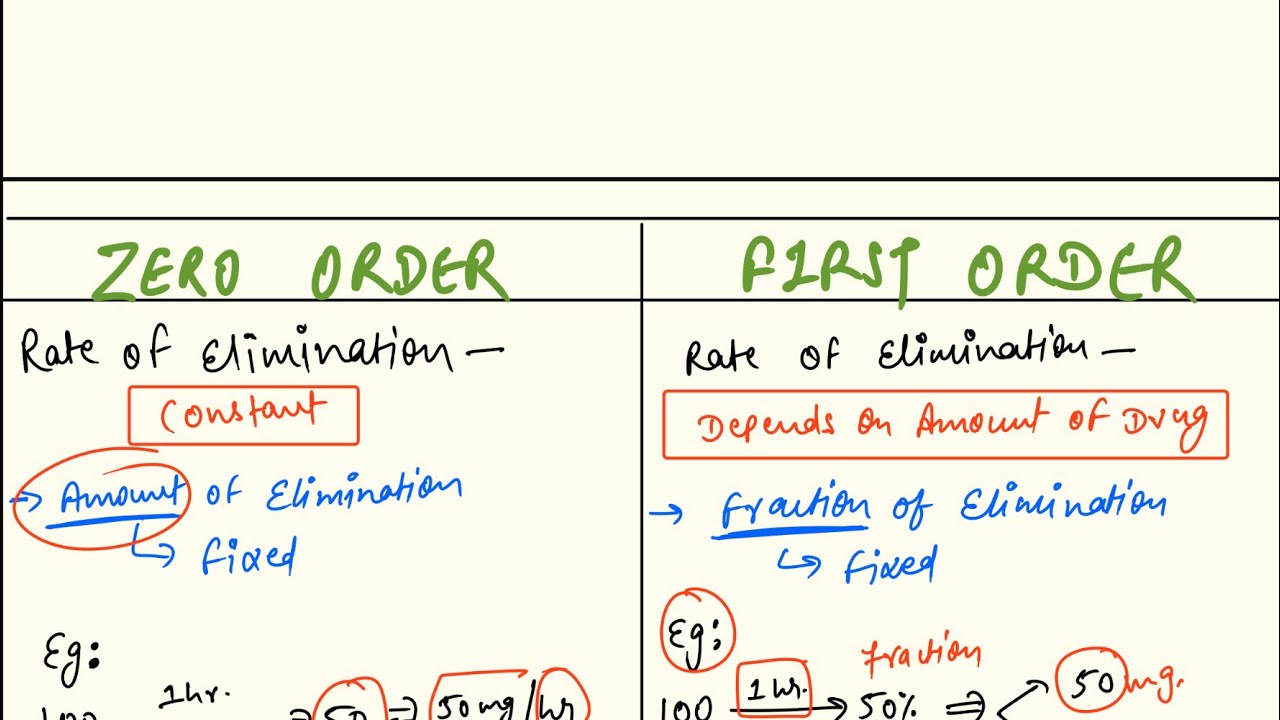 ZERO ORDER
Rate of Elimination –
Constant
→ Amount of Elimination
↳ fixed
Eg:
1hr.
100 → 50 ⇒ 50 mg/hr
FIRST ORDER
Rate of Elimination –
Depends on Amount of Drug
→ fraction of Elimination
↳ fixed
Eg:
fraction
100 1 hr. → 50% ⇒ 50 mg.